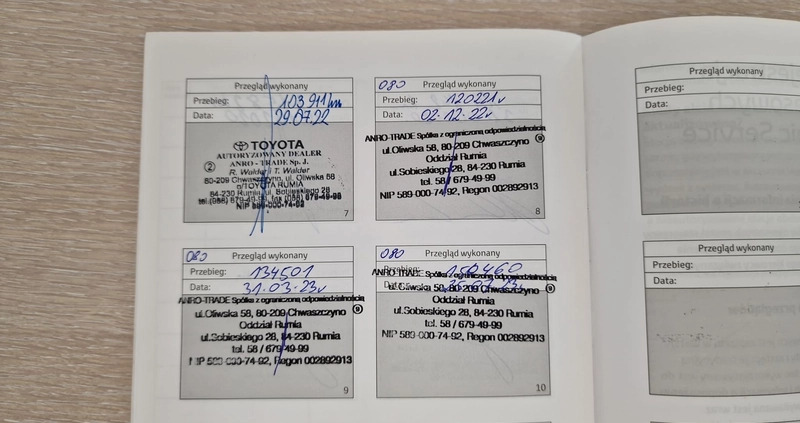 Przegląd wykonany
Przebieg: 103 911 km
Data: 29.07.22
TOYOTA
AUTORYZOWANY DEALER
ANRO - TRADE Sp. J.
2 R. Walder i T. Walder
80-209 Chwaszczyno, ul. Oliwska 58
o/TOYOTA RUMIA
84-230 Rumia, ul. Sobieskiego 28
NIP 589-000-74-92
7
080 Przegląd wykonany
Przebieg: 120221
Data: 02.12.22
ANRO-TRADE Spółka z ograniczoną odpowiedzialnością
ul.Oliwska 58, 80-209 Chwaszczyno
Oddział Rumia
ul.Sobieskiego 28, 84-230 Rumia
tel. 58 / 679-49-99
NIP 589-000-74-92, Regon 002892913
8
080 Przegląd wykonany
Przebieg: 134501
Data: 31.03.23
ANRO-TRADE Spółka z ograniczoną odpowiedzialnością
ul.Oliwska 58, 80-209 Chwaszczyno
Oddział Rumia
ul.Sobieskiego 28, 84-230 Rumia
tel. 58 / 679-49-99
NIP 589-000-74-92, Regon 002892913
9
080 Przegląd wykonany
Przebieg:
Data:
ANRO-TRADE Spółka z ograniczoną odpowiedzialnością
ul.Oliwska 58, 80-209 Chwaszczyno
Oddział Rumia
ul.Sobieskiego 28, 84-230 Rumia
tel. 58 / 679-49-99
NIP 589-000-74-92, Regon 002892913
10
Przegląd wykonany
Przebieg:
Data:
Przegląd wykonany
Przebieg:
Data: